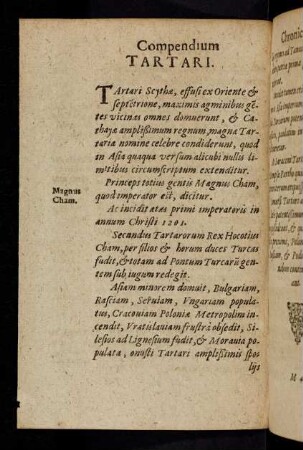 Compendium
TARTARI.
TArtari Scythæ, effusi ex Oriente &
septētrione, maximis agminibus gētes
vicinas omnes domuerunt, & Ca-
thayæ amplissimum regnum, magnæ Tar-
tariæ nomine celebre condiderunt, quod
in Asia quaqua versum alicubi nullis li-
mitibus circumscriptum extenditur.
Princeps totius gentis Magnus Cham,
quod imperator est, dicitur.
Magnus
Cham.
Ac incidit ætas primi imperatoris in
annum Christi 1201.
Secundus Tartarorum Rex Hocotius
Cham, per filios & horum duces Turcas
fudit, & totam ad Pontum Turcarū gen-
tem sub iugum redegit.
Asiam minorem domuit, Bulgariam,
Rasciam, Seruiam, Vngariam popula-
tus, Cracouiam Poloniæ Metropolim in-
cendit, Vratislauiam frustrà obsedit, Si-
lesios ad Lignesium fudit, & Morauia po-
pulata, onusti Tartari amplissimis spo-
lijs
Chronic